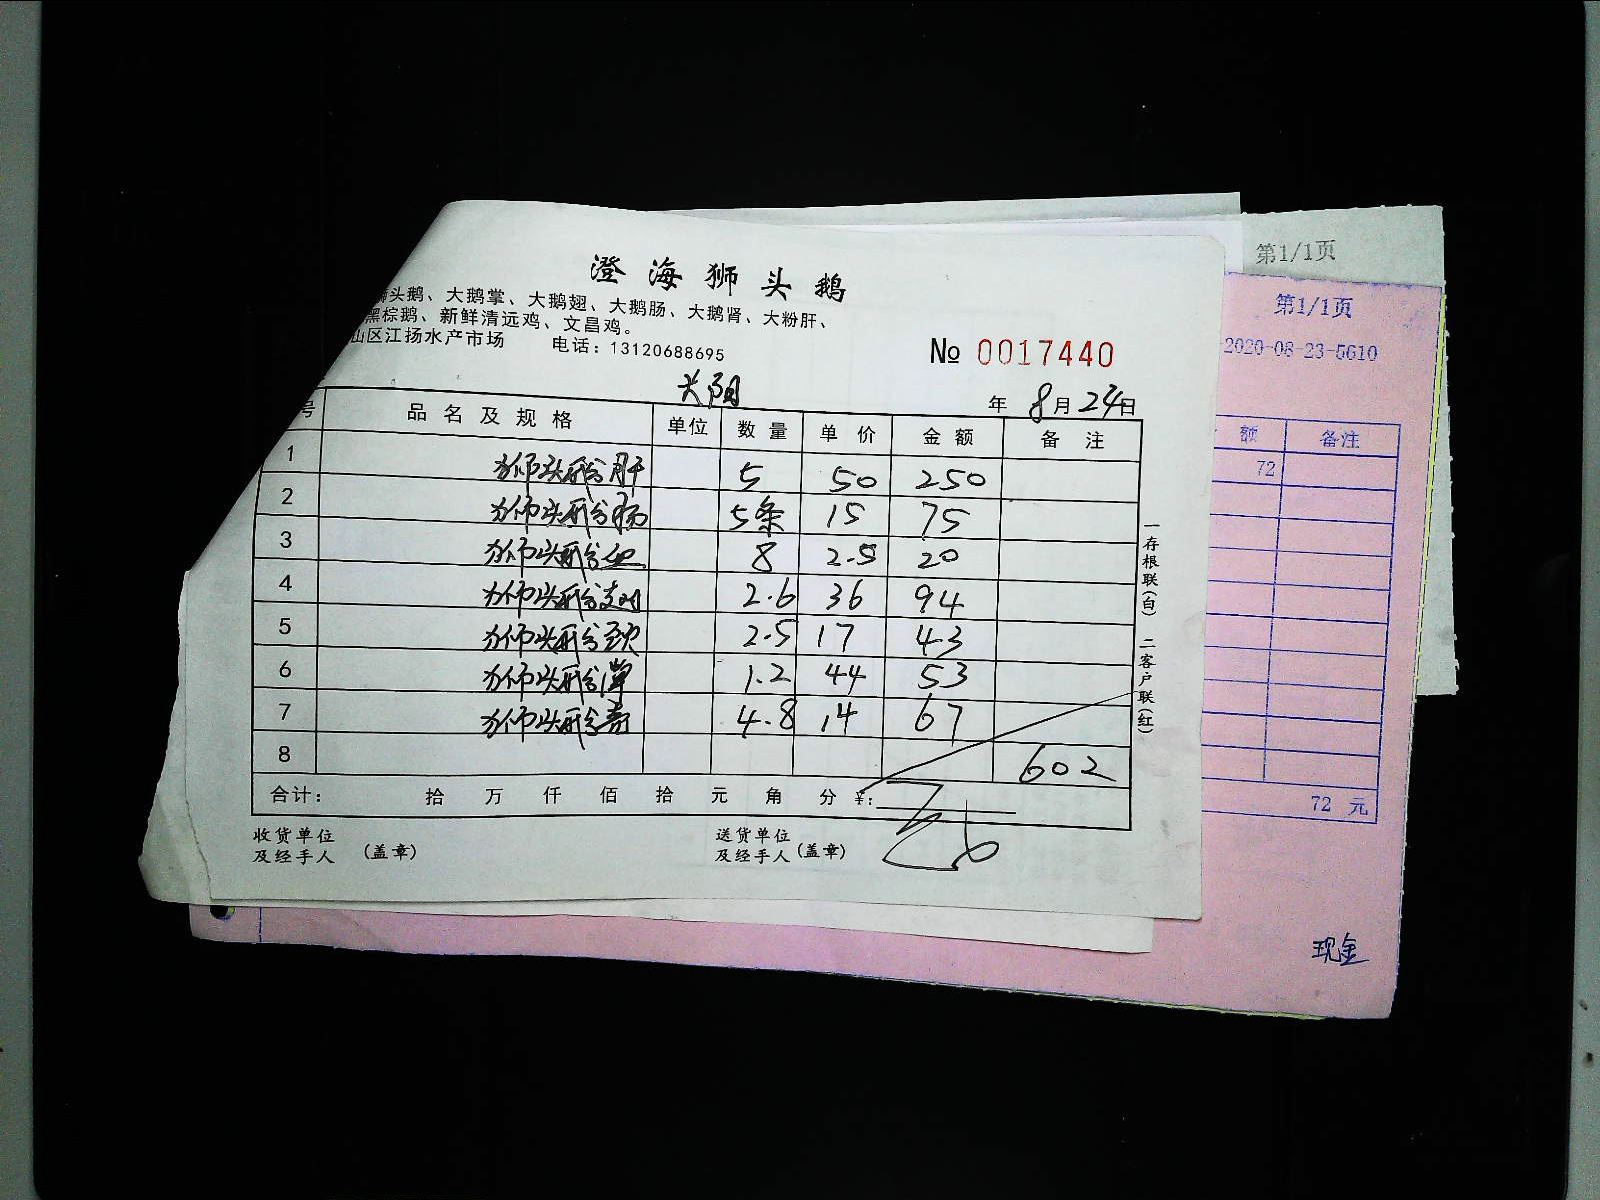 澄海狮头鹅
狮头鹅、大鹅掌、大鹅翅、大鹅肠、大鹅肾、大粉肝、
黑棕鹅、新鲜清远鸡、文昌鸡。
山区江扬水产市场 电话：13120688695
№ 0017440
年 8月24日
号 品名及规格 单位 数量 单价 金额 备注
1 狮头鹅肝 5 50 250
2 狮头鹅肠 5条 15 75
3 狮头鹅血 8 2.5 20
4 狮头鹅 2.6 36 94
5 狮头鹅颈 2.5 17 43
6 狮头鹅 1.2 44 53
7 狮头鹅 4.8 14 67
8 602
合计： 拾 万 仟 佰 拾 元 角 分 ¥：
收货单位
及经手人 (盖章)
送货单位
及经手人 (盖章)
一存根联(白) 二客户联(红)
第1/1页
第1/1页
2020-08-23-5610
额 备注
72
72 元
现金